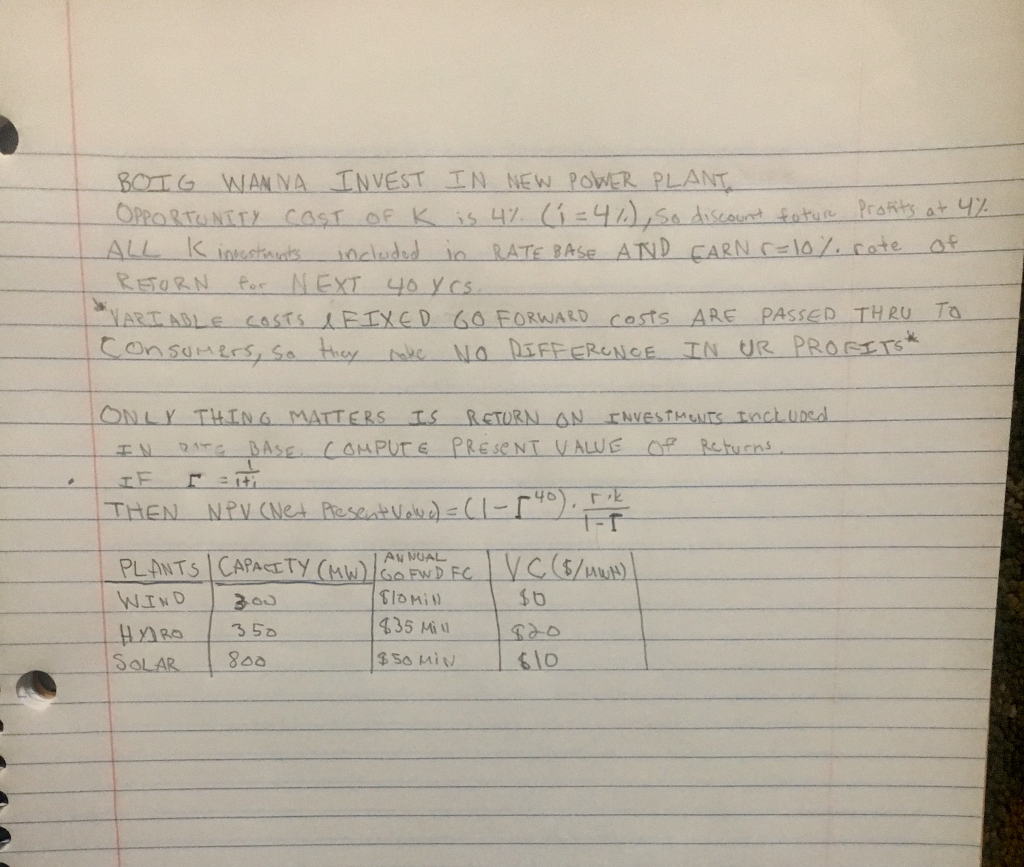 BOIG WANNA INVEST IN NEW POWER PLANT.
OPPORTUNITY COST OF K is 4% (i=4%), So discount future Profits at 4%
ALL K investments included in RATE BASE AND EARN r=10% rate of
RETURN for NEXT 40 yrs.
*VARIABLE COSTS & FIXED GO FORWARD COSTS ARE PASSED THRU TO
Consumers, so they make NO DIFFERENCE IN UR PROFITS*
ONLY THING MATTERS IS RETURN ON INVESTMENTS Included
IN RATE BASE. COMPUTE PRESENT VALUE OF Returns.
IF Γ = 1/1+i
THEN NPV (Net Present Value) = (1-Γ^40) · r·k/1-Γ
PLANTS | CAPACITY (MW) | ANNUAL GO FWD FC | VC ($/MWH)
WIND 300 $10 Mill $0
HYDRO 350 $35 Mill $20
SOLAR 800 $50 Mill $10